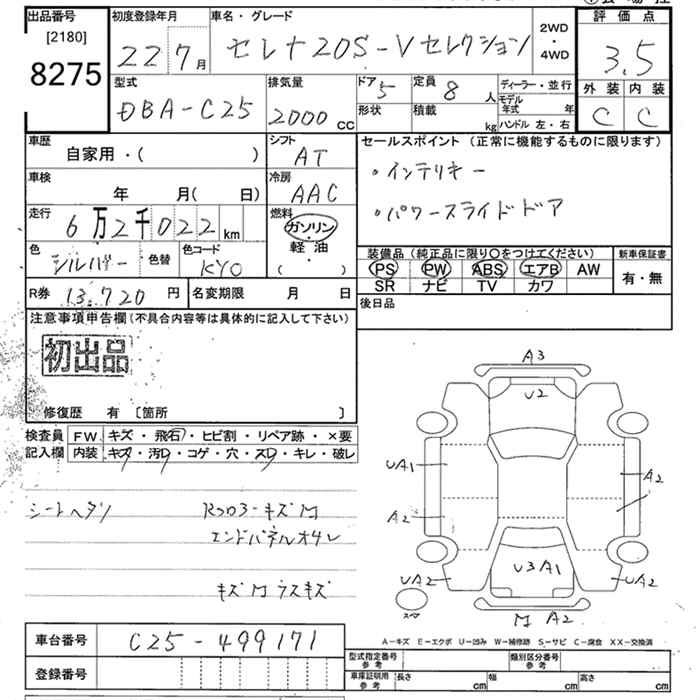 出品番号
[2180]
8275
初度登録年月
22 7月
車名・グレード
セレナ20S-Vセレクション
2WD
・
4WD
評価点
3.5
外装 内装
C C
型式
DBA-C25
排気量
2000 cc
ドア 5
定員 8 人
形状
積載 kg
ディーラー・並行
モデル年式 年
ハンドル 左・右
車歴
自家用・( )
シフト
AT
セールスポイント (正常に機能するものに限ります)
・インテリキー
・パワースライドドア
車検
年 月( 日)
冷房
AAC
走行
6万2千022 km
燃料
ガソリン
・
軽油
( )
色
シルバー
色替
色コード
KY0
装備品(純正品に限り○をつけてください)
PS PW ABS エアB AW
SR ナビ TV カワ
新車保証書
有・無
R券 13.720 円
名変期限 月 日
後日品
注意事項申告欄(不具合内容等は具体的に記入して下さい)
初出品
修復歴 有 〔箇所 〕
検査員
記入欄
FW キズ・飛石・ヒビ割・リペア跡・×要
内装 キズ・汚れ・コゲ・穴・スレ・キレ・破レ
シートヘタリ
キズM
エンドパネルオサレ
キズMウスキズ
A3
U2
UA1
A2
A2
U3A1
UA2
UA2
スペア
M A2
A-キズ E-エクボ U-凹み W-補修跡 S-サビ C-腐食 XX-交換済
車台番号
C25-499171
登録番号
型式指定番号
参考
類別区分番号
参考
車庫証明用
参考
長さ cm
幅 cm
高さ cm